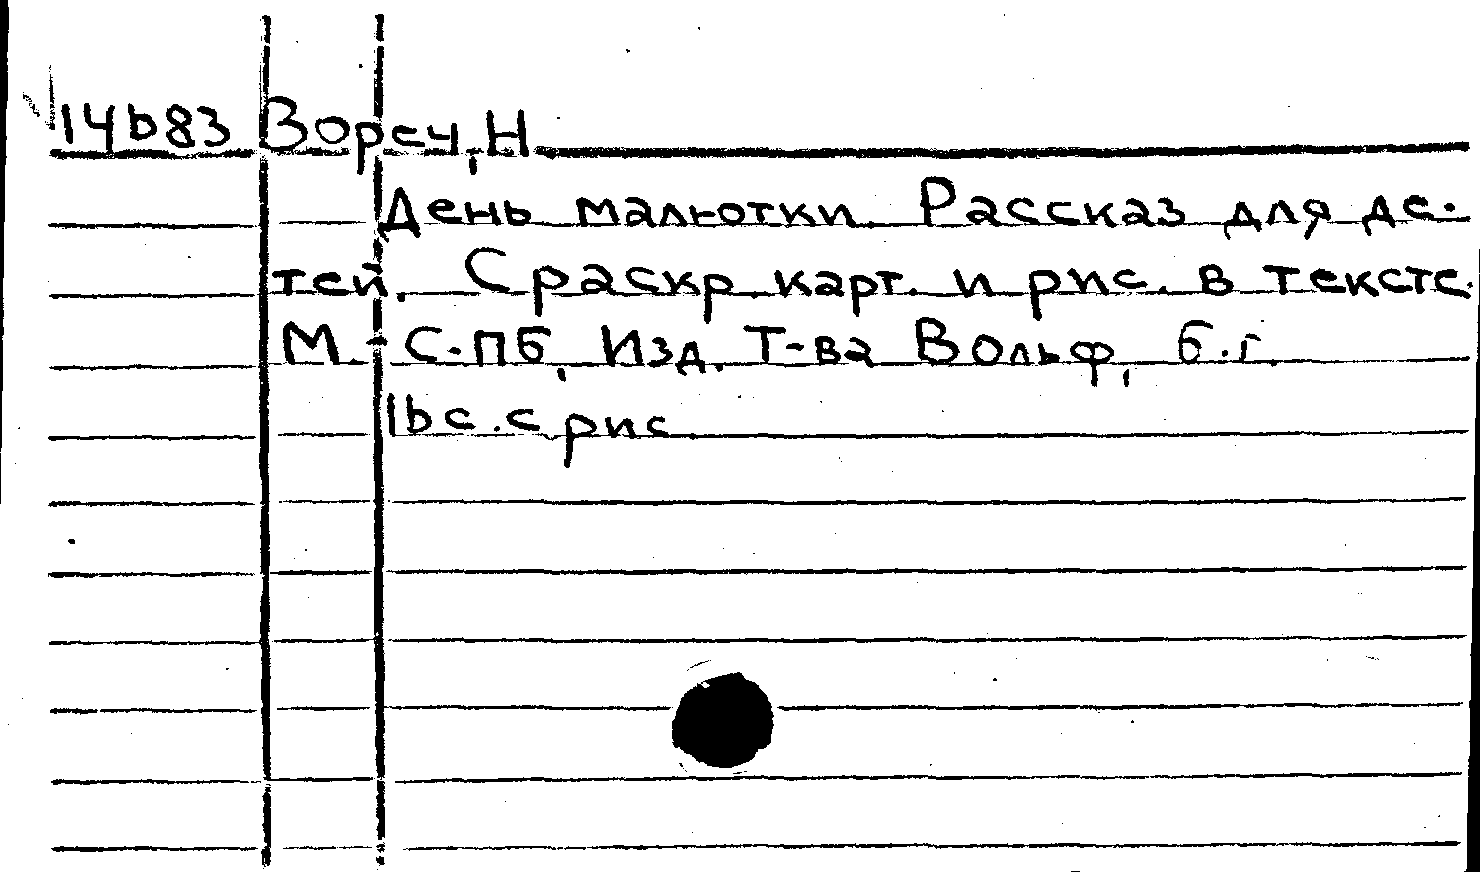 14683 Зореч, Н
День малютки. Рассказ для де-
тей. С раскр. карт. и рис. в тексте.
М.-С-ПБ, Изд. Т-ва Вольф, б.г.
16с. с рис.